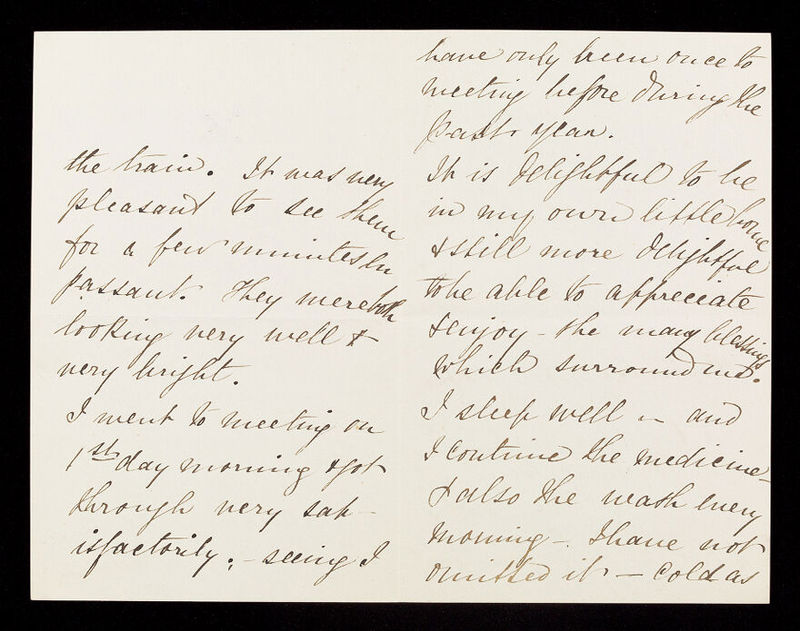 the train. It was very
pleasant to see them
for a few minutes en
passant. They were both
looking very well &
very bright.
I went to meeting on
1st day morning & got
through very sat-
isfactorily, - seeing I
have only been once to
meeting before during the
past year.
It is delightful to be
in my own little home
& still more delightful
to be able to appreciate
& enjoy - the many blessings
which surround me.
I sleep well - and
I continue the medicine -
& also the wash every
morning -. I have not
omitted it - cold as